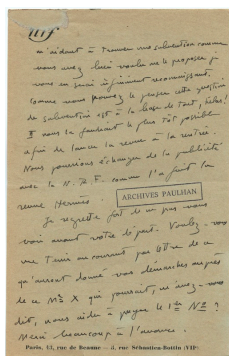 nrf
m'aidant à trouver une subvention comme
vous avez bien voulu me le proposer je
vous en serais infiniment reconnaissant.
Comme vous pouvez le penser cette question
de subvention est à la base de tout, hélas!
Il nous la faudrait le plus tôt possible
afin de lancer la revue à la rentrée.
Nous pourrions échanger de la publicité
avec la N.R.F. comme l'a fait la
revue Hermès.
ARCHIVES PAULHAN
Je regrette fort de ne pas vous
voir avant votre départ. Voulez-vous
me tenir au courant par lettre de ce
qu'auront donné vos démarches auprès
de ce Mr X qui pourrait, m'avez-vous
dit, nous aider à payer le 1er No?
Merci beaucoup à l'avance.
Paris, 43, rue de Beaune — 5, rue Sébastien-Bottin (VIIe)